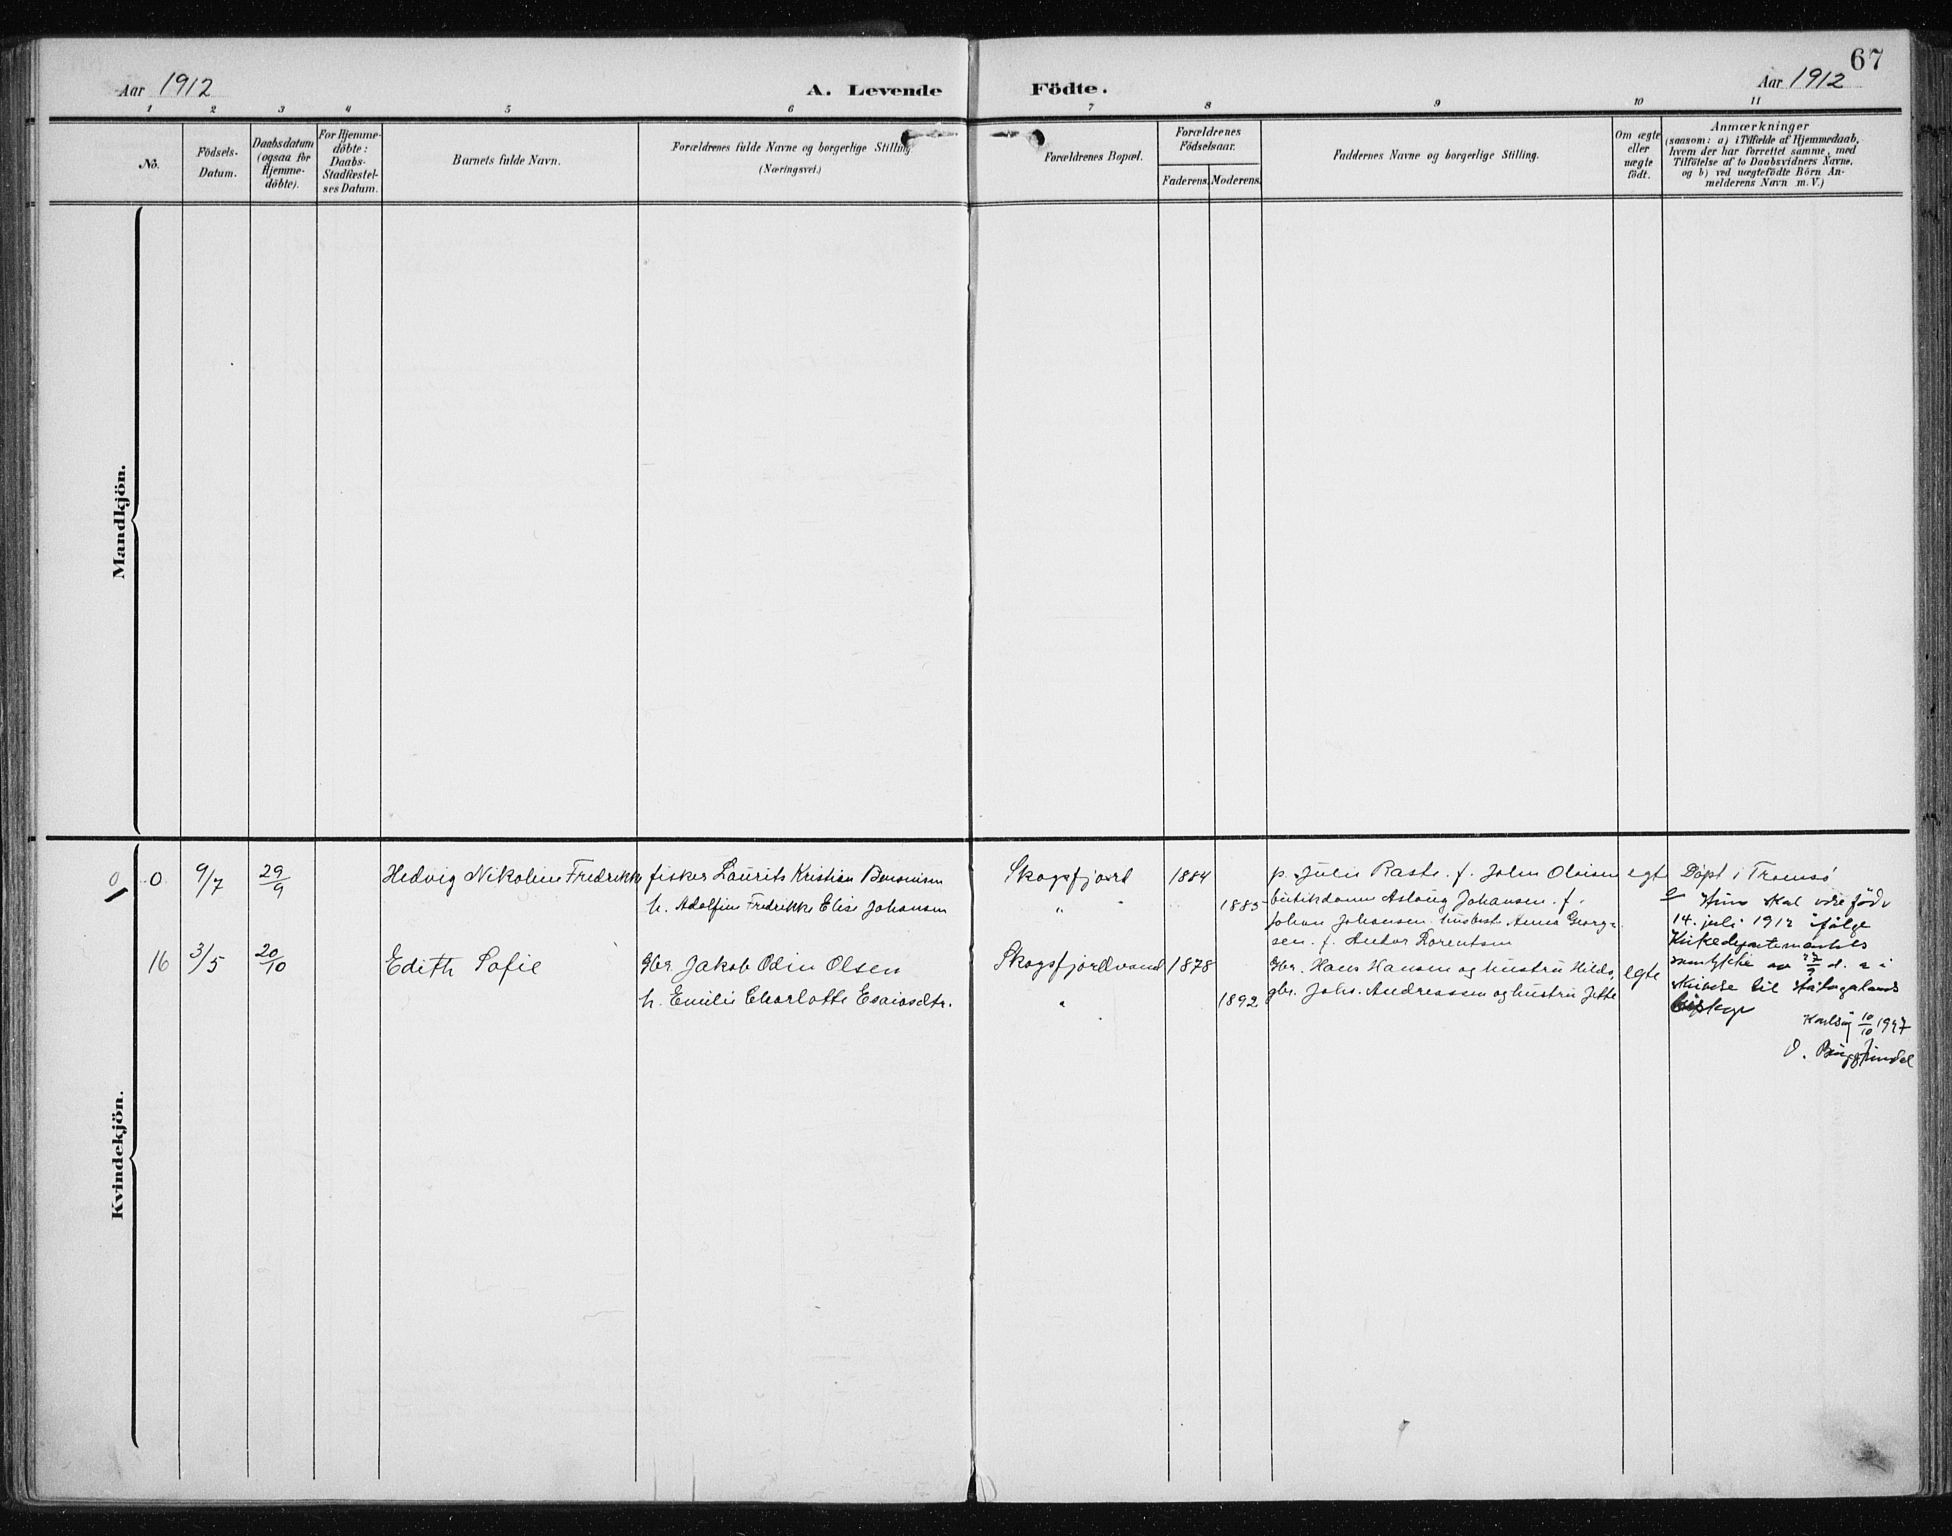 67
Aar 1912
A. Levende Födte.
Aar 1912
1 2 3 4 5 6 7 8 9 10 11
No.
Födsels-
Datum.
Daabsdatum
(ogsaa for
Hjemme-
döbte).
For Hjemme-
döbte:
Daabs-
Stadfæstel-
ses Datum.
Barnets fulde Navn.
Forældrenes fulde Navne og borgerlige Stilling.
(Næringsvei.)
Forældrenes Bopæl.
Forældrenes
Födselsaar.
Faderens. Moderens.
Faddernes Navne og borgerlige Stilling.
Om ægte
eller
uægte
födt.
Anmærkninger
(saasom: a) i Tilfælde af Hjemmedaab,
hvem der har forrettet samme, med
Tilföielse af to Daabsvidners Navne,
og b) ved uægtefödte Börn An-
melderens Navn m. V.)
Mandkjön.
Kvindekjön.
0 0 9/7 29/9
Hedvig Nikoline Fredrikke
fisker Laurits Kristian
h. Adolfine Fredrikke Elise Johansen
Skogsfjord 1884
" " 1885
p. Julie f. John
Aslaug Johansen. f.
Johan Johansen. Anna Georg-
sen. f. Lorentsen
egt
Döpt i Tromsö
Hun skal være födt
14. juli 1912 ifölge
Kirkedepartementets
samtykke av 27/9 d. a. i
skrivelse til Hålogalands
biskop
10/10 1947
O.
16 3/5 20/10
Edith Sofie
gbr. Jakob Odin Olsen
h. Emilie Charlotte Esaiasdtr.
Skogsfjordvand 1878
" 1892
gbr. Hans Hansen og hustru Hilda,
gbr. Johs. Andreassen og hustru Jette
egte